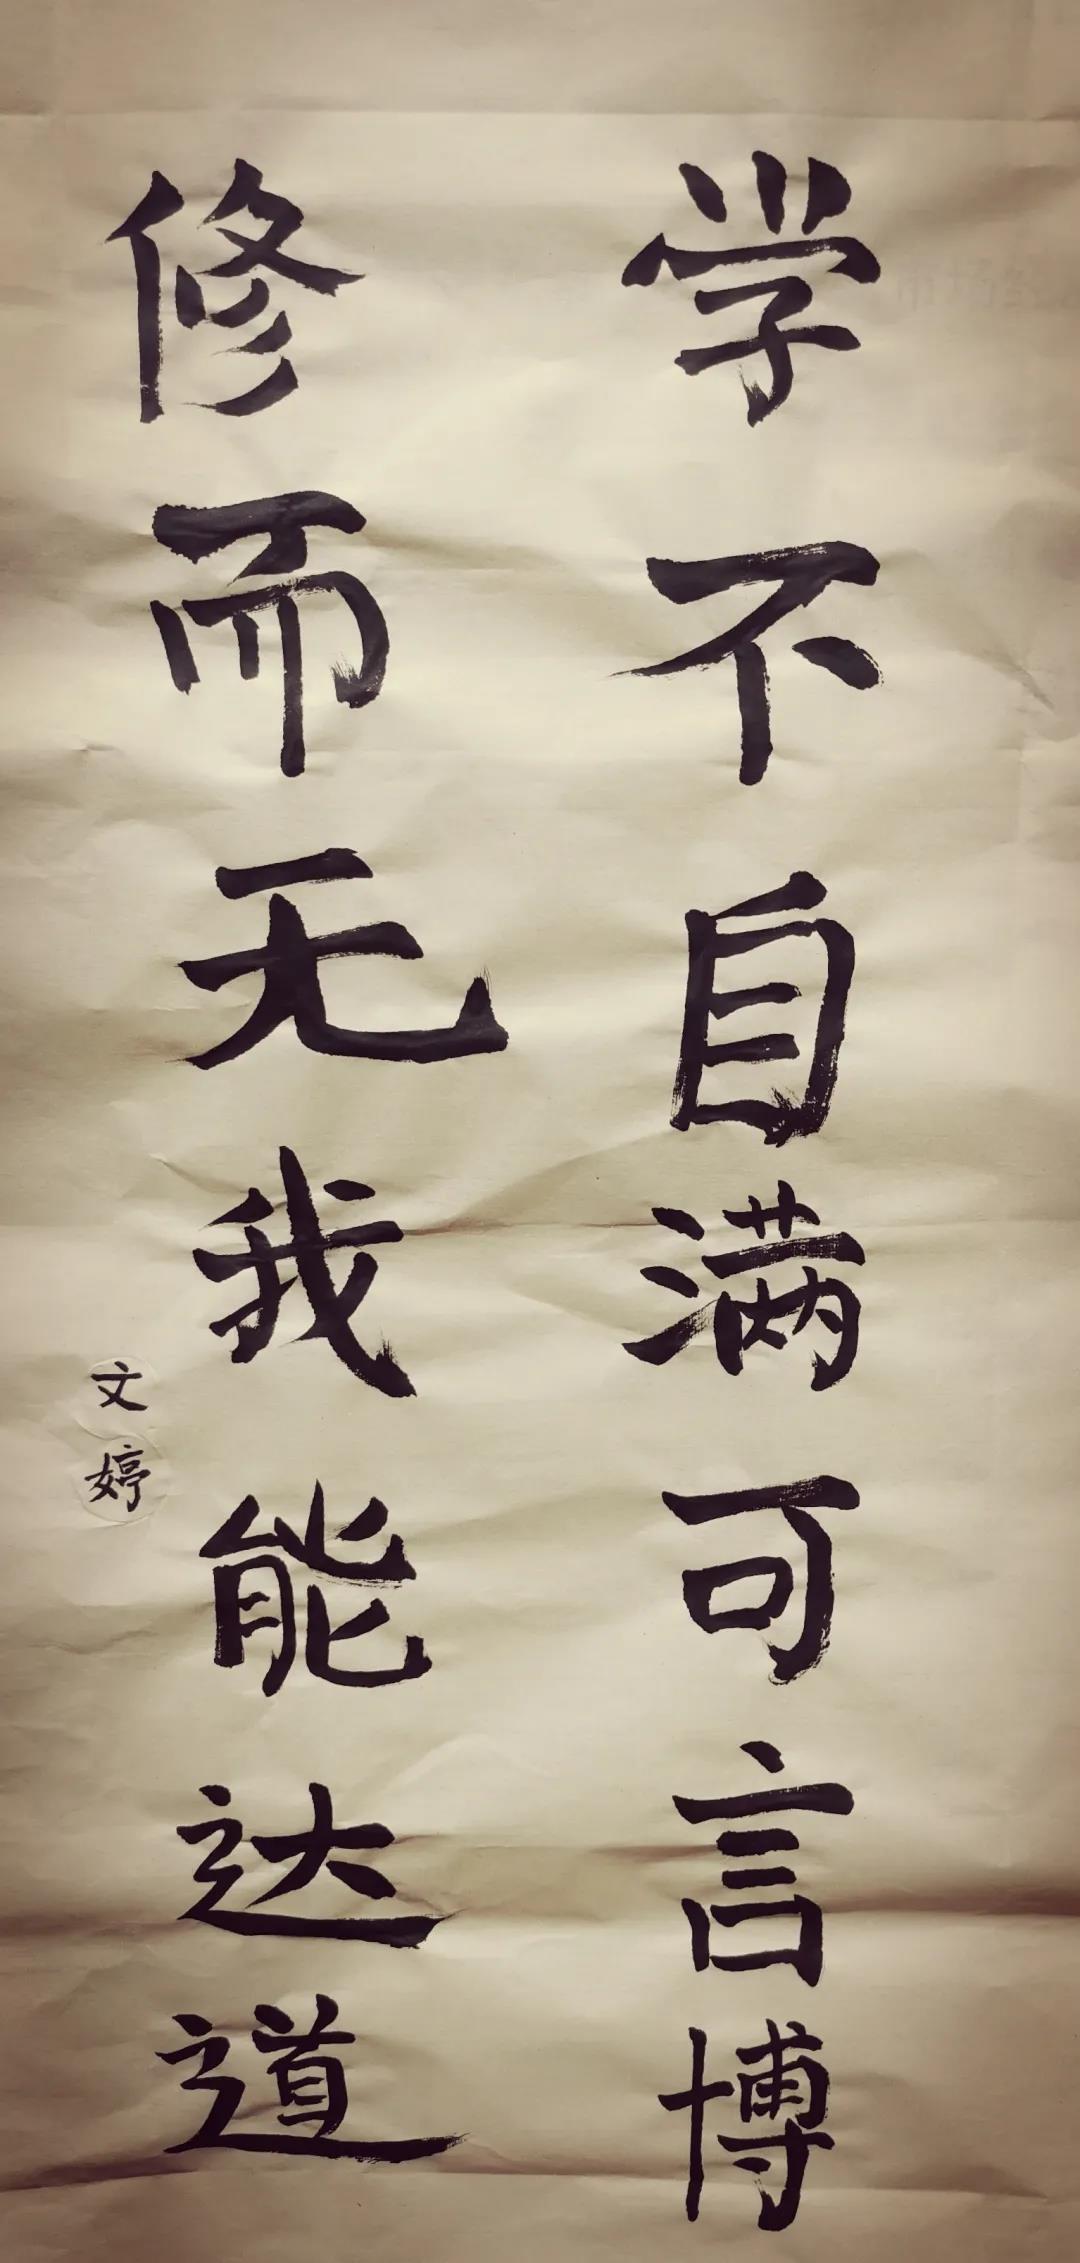 学不自满可言博
修而无我能达道
文婷